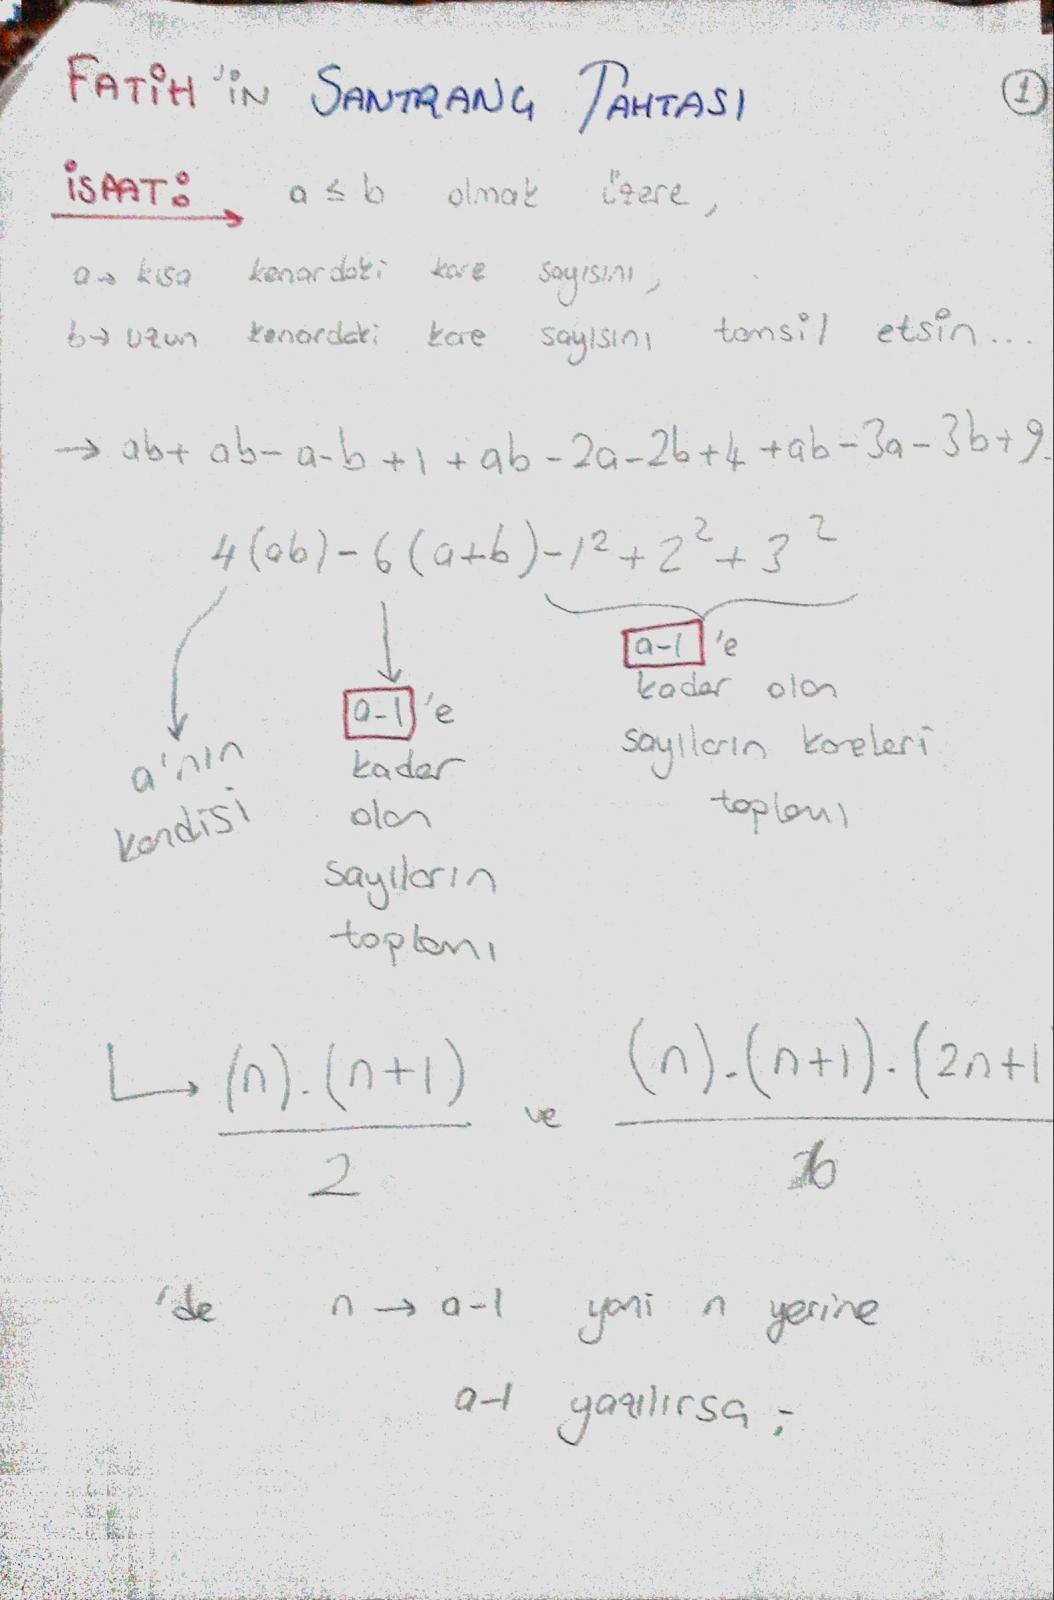 FATİH'İN SANTRANÇ TAHTASI
1
İSPAT:
a ≤ b olmak üzere,
a→ kısa kenardaki kare sayısını,
b→ uzun kenardaki kare sayısını temsil etsin...
→ ab+ ab-a-b+1+ab-2a-2b+4+ab-3a-3b+9
4(ab)-6(a+b)-1²+2²+3²
a-1 'e
kadar olan
sayıların kareleri
toplamı
a-1 'e
kadar
olan
sayıların
toplamı
a'nın
kendisi
(n).(n+1)
2
ve
(n).(n+1).(2n+1
6
'de n → a-1 yani n yerine
a-1 yazılırsa;